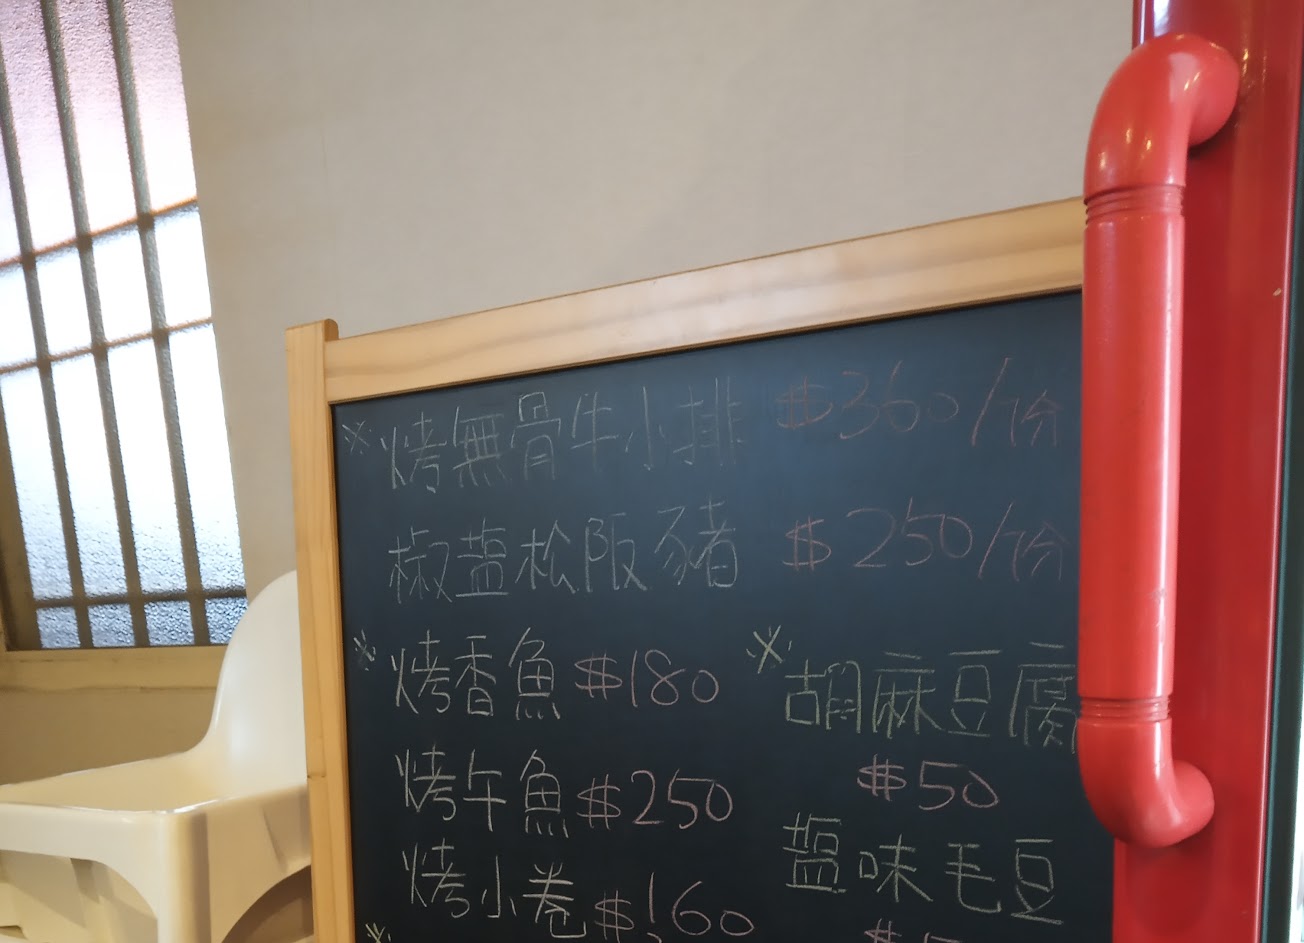 ※烤無骨牛小排 $360/份
椒盐松阪豬 $250/份
※烤香魚 $180
烤午魚 $250
烤小卷 $160
※胡麻豆腐
$50
盐味毛豆